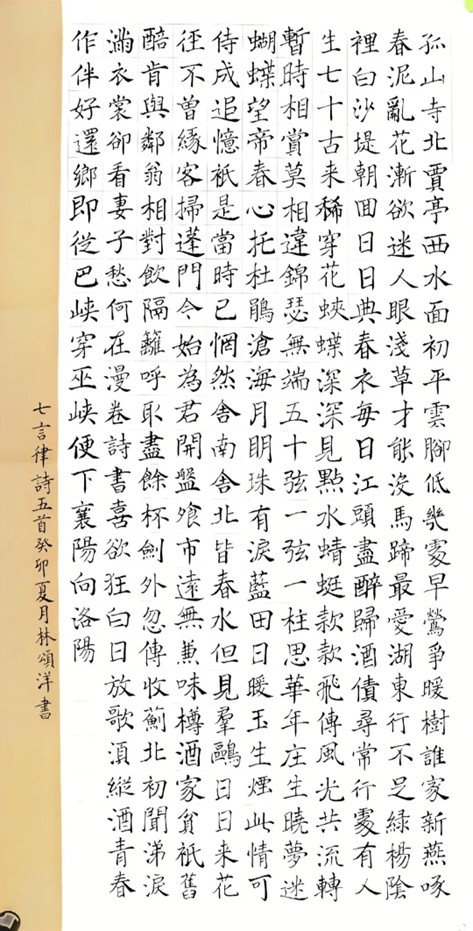 孤山寺北賈亭西水面初平雲腳低幾處早鶯爭暖樹誰家新燕啄
春泥亂花漸欲迷人眼淺草才能沒馬蹄最愛湖東行不足綠楊陰
裡白沙堤朝囬日日典春衣每日江頭盡醉歸酒債尋常行處有人
生七十古来稀穿花蛺蝶深深見點水蜻蜓款款飛傳風光共流轉
暫時相賞莫相違錦瑟無端五十弦一弦一柱思華年庄生曉夢迷
蝴蝶望帝春心托杜鵑滄海月明珠有淚藍田日暖玉生煙此情可
侍成追憶衹是當時已惘然舍南舍北皆春水但見羣鷗日日来花
徑不曾緣客掃蓬門今始為君開盤飧市遠無兼味樽酒家貧衹舊
醅肯與鄰翁相對飲隔籬呼取盡餘杯劍外忽傳收薊北初聞涕淚
滿衣裳卻看妻子愁何在漫卷詩書喜欲狂白日放歌須縱酒青春
作伴好還鄉即從巴峽穿巫峽便下襄陽向洛陽
七言律詩五首癸卯夏月林頌洋書